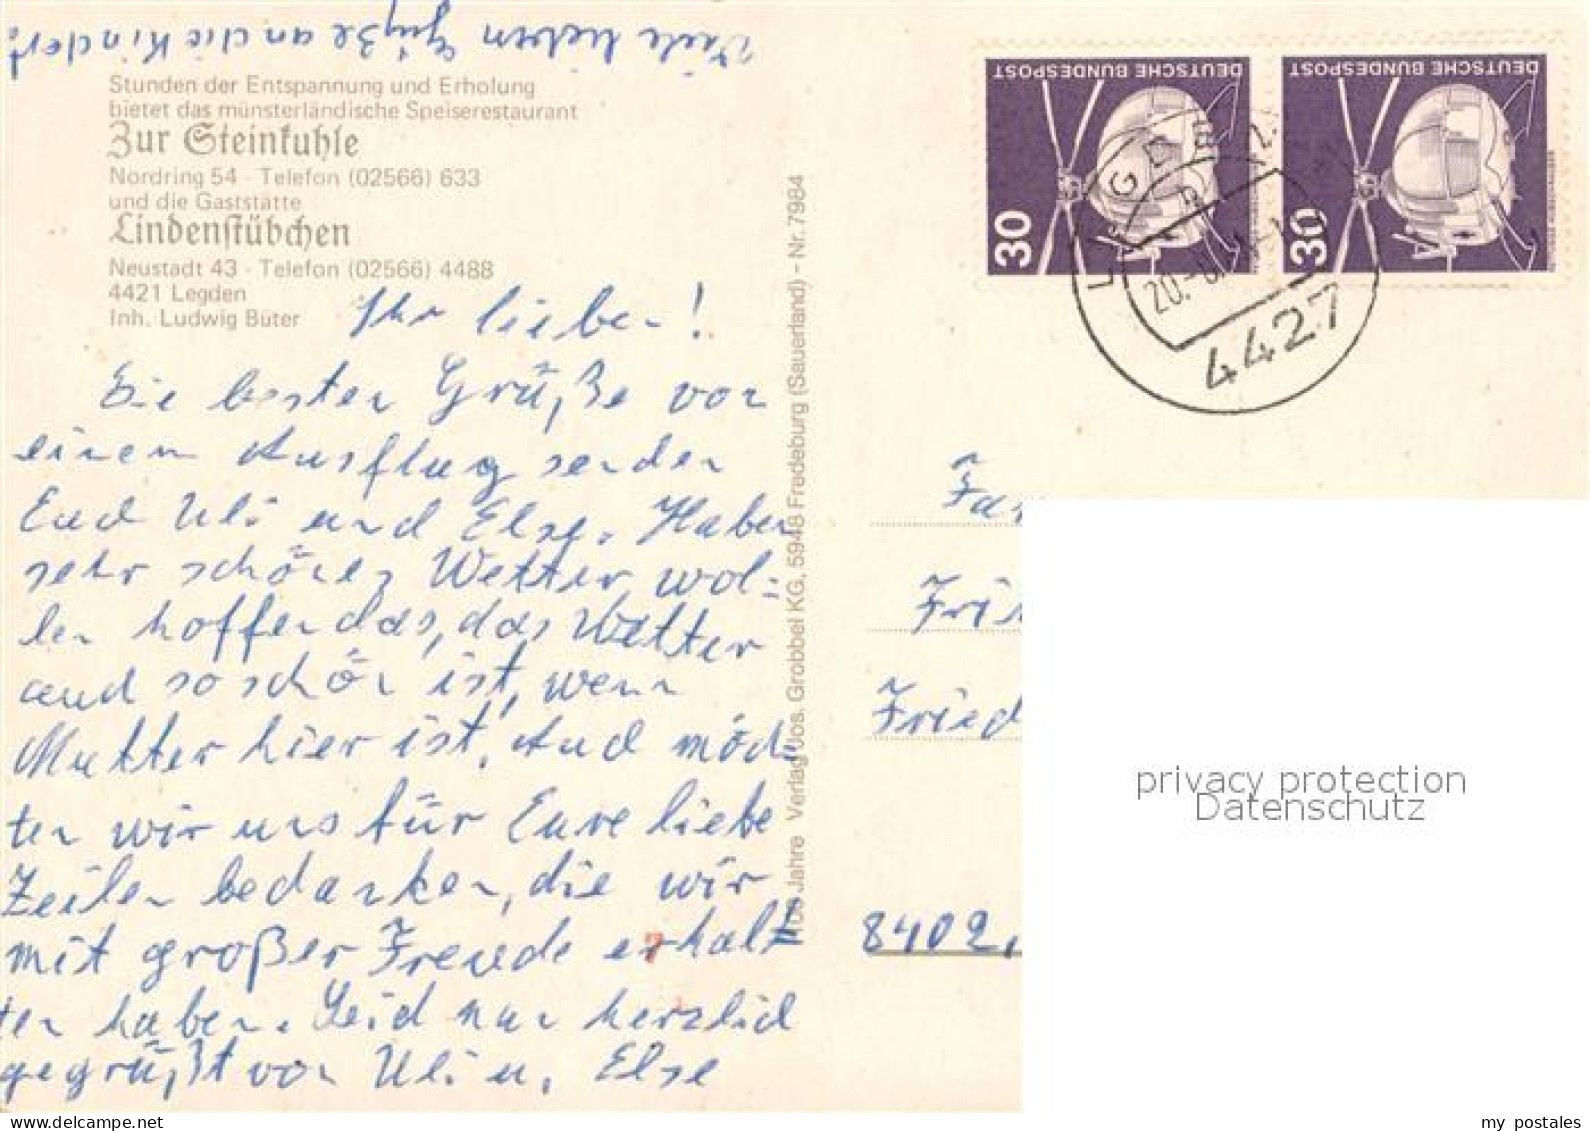 Viele lieben Grüße an die Kinder.
Stunden der Entspannung und Erholung
bietet das münsterländische Speiserestaurant
Zur Steinkuhle
Nordring 54 - Telefon (02566) 633
und die Gaststätte
Lindenstübchen
Neustadt 43 - Telefon (02566) 4488
4421 Legden
Inh. Ludwig Büter
Ihr lieben!
Die besten Grüße von
einem Ausflug senden
Euch Uli und Else. Haben
sehr schönes Wetter wol=
len hoffen das, das Wetter
auch so schön ist, wenn
Mutter hier ist. Auch möch
ten wir uns für Eure liebe
Zeilen bedanken, die wir
mit großer Freude erhalt
ten haben. Seid nun herzlich
gegrüßt von Uli u. Else
100 Jahre Verlag Jos. Grobbel KG, 5948 Fredeburg (Sauerland) - Nr. 7984
DEUTSCHE BUNDESPOST
30
DEUTSCHE BUNDESPOST
30
LEGDEN
20.
4427
Fa
Fri
Fried
8402,
privacy protection
Datenschutz
my postales